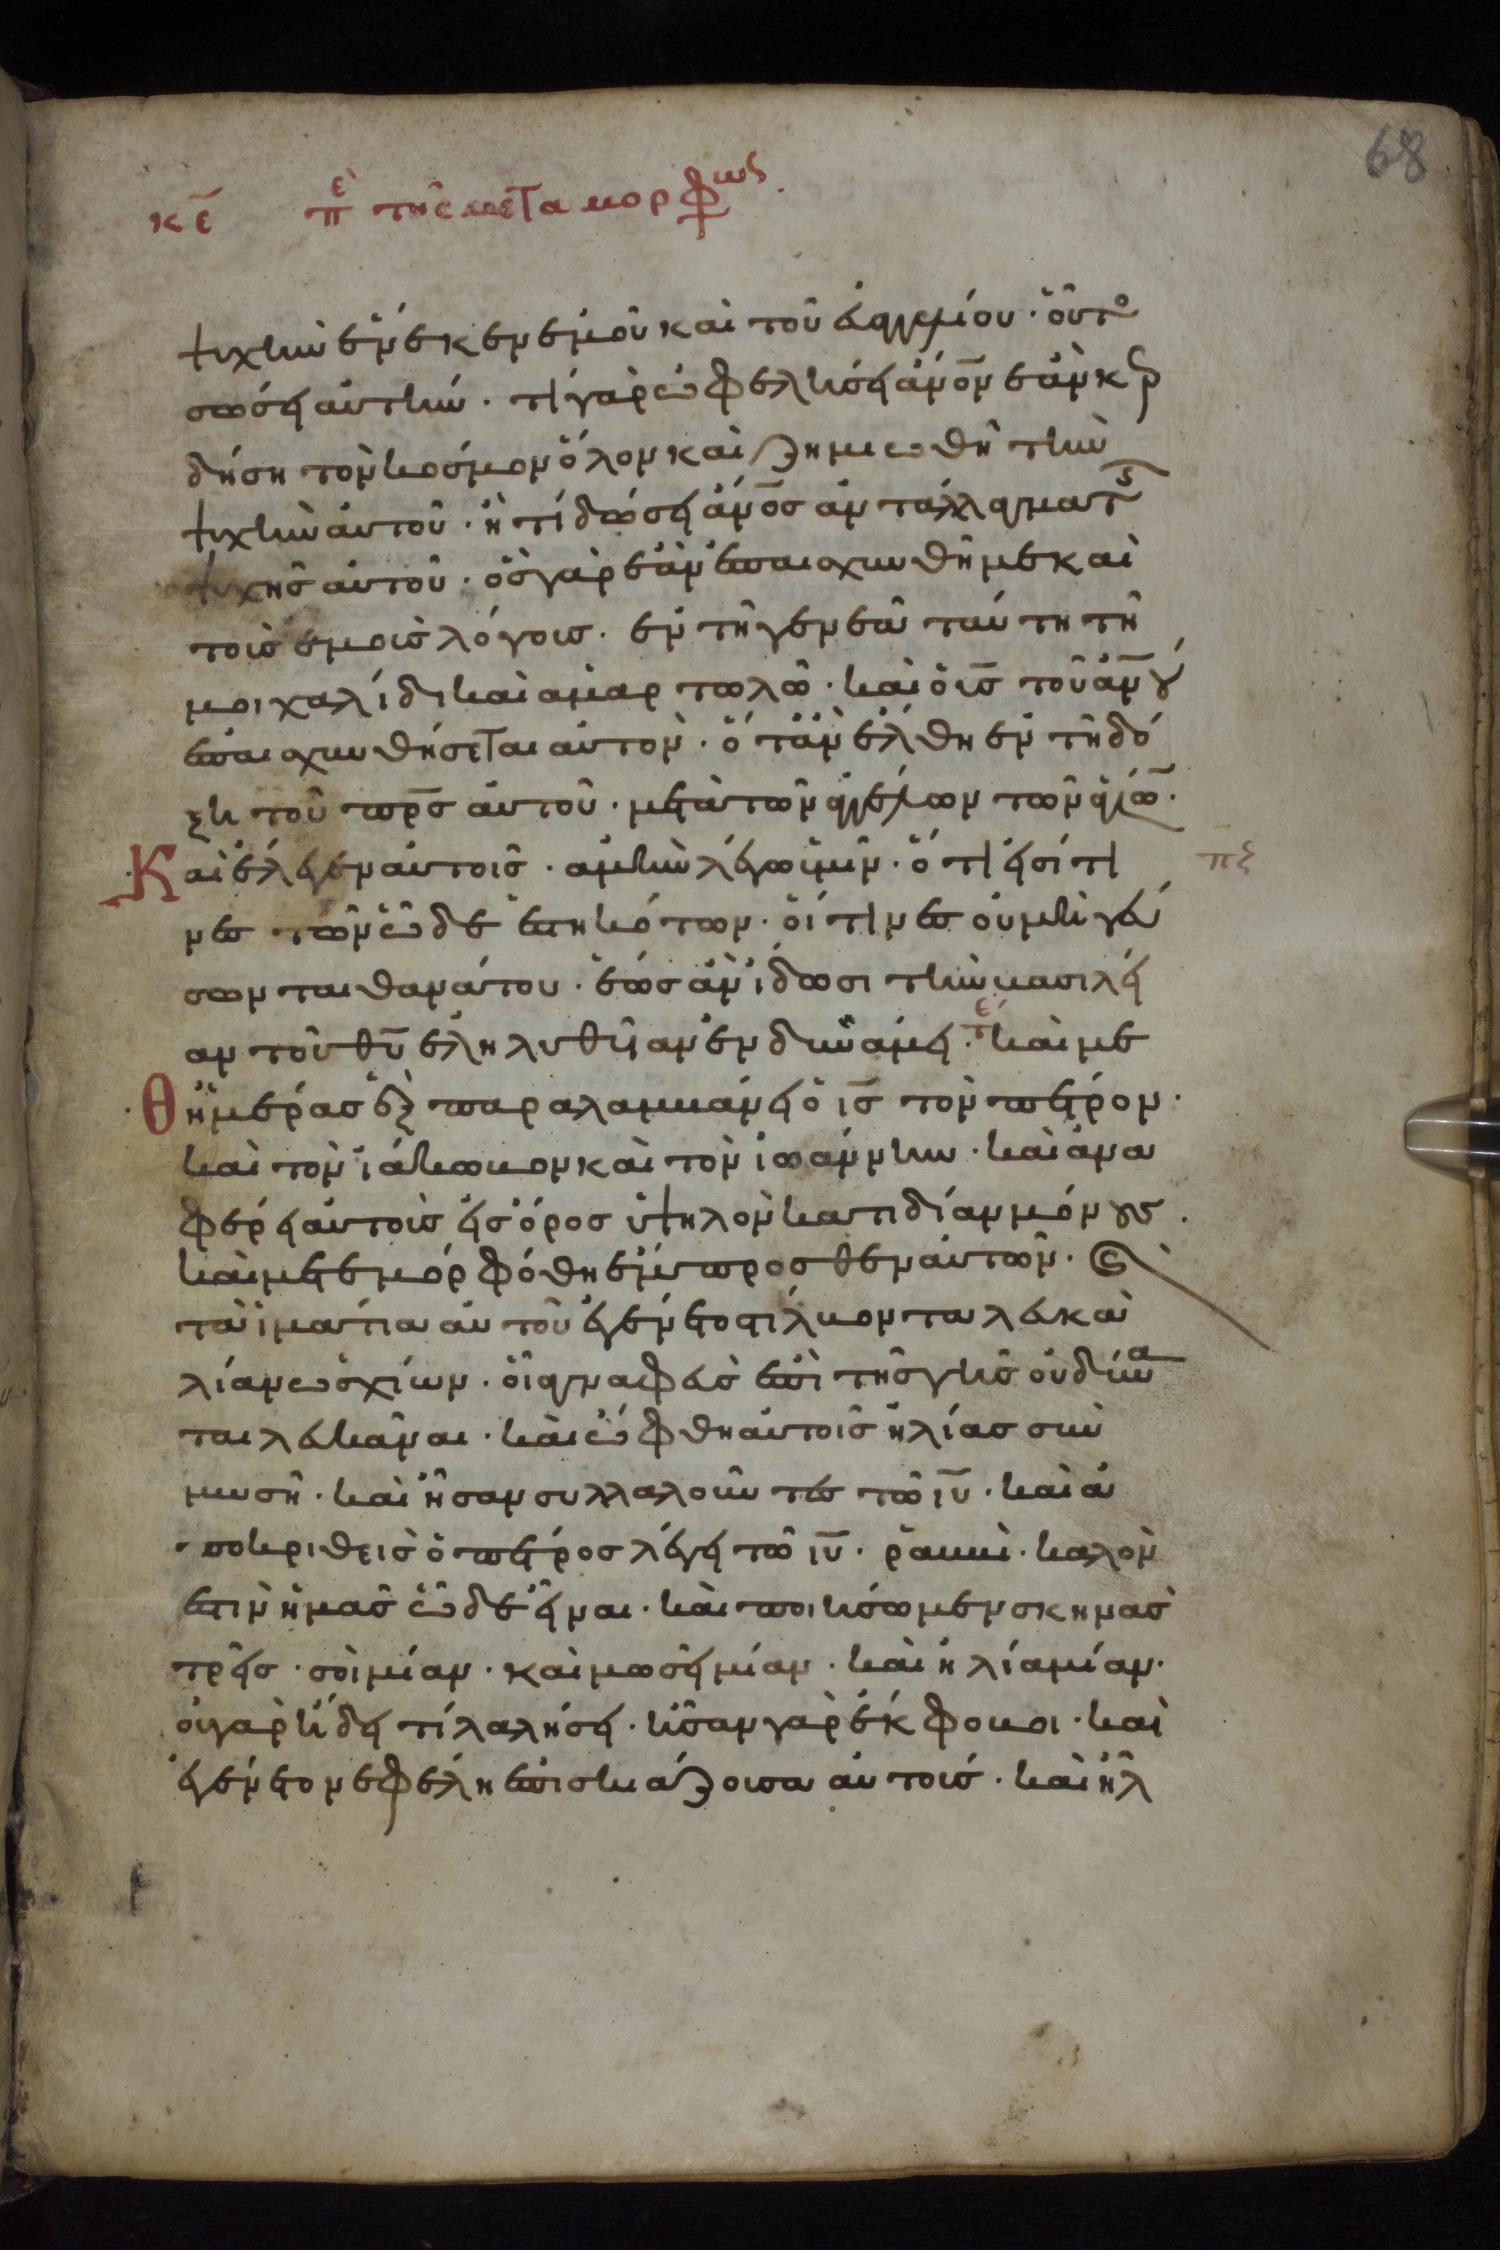 68
κε̄ πὲ τῆς μεταμορφώς.
ψυχὴν ἕνεκεν ἐμοῦ καὶ τοῦ ἐυαγγελίου· οὗτο
σώσει αὐτήν· τί γὰρ ὠφελήσει ἄνον̄ ἐὰν κερ
δήση τὸν κόσμον ὅλον καὶ ζημιωθῆ τὴν
ψυχὴν αὐτοῦ· ἢ τί δώσει ἄνο̄ς ἀντάλλαγμα τς
ψυχῆς αὐτοῦ· ὃς γὰρ ἐὰν ἐπαισχυνθῆ με καὶ
τοὶς ἐμοὶς λόγοις· ἐν τῆ γενεᾶ ταύτη τῆ
μοιχαλίδι καὶ ἁμαρτωλῶ· καὶ ὁ ὑς̄ τοῦ ἀνοῡ
ἐπαισχυνθήσεται αὐτὸν· ὅταν ἔλθη ἐν τῆ δό
ξη τοῦ πρς̄ αὐτοῦ· μετὰ τῶν ἀγγέλων τῶν ἁγίω̄·
Καὶ ἔλεγεν αὐτοῖς· ἀμὴν λέγω ὑμῖν· ὅτι εἰσί τι πξ
νες τῶν ὧδε ἑστηκότων· οἵτινες οὐ μὴ γεύ
σωνται θανάτου· ἕως ἂν ἴδωσι τὴν βασιλεί
αν τοῦ θῡ ἐληλυθῦιαν ἐν δυνάμει· τέ καὶ με
θ ἡμέρας ἓξ παραλαμβάνει ὁ ις̄ τὸν πέτρον·
καὶ τὸν ἰάκωβον καὶ τὸν ἰωάννην· καὶ ἀνα
φέρει αὐτοὺς εἰς ὄρος ὑψηλὸν κατιδίαν μόνους·
καὶ μετεμόρφόθη ἔμπροσθεν αὐτῶν· ϛ̀
τὰ ἱμάτια αὐτοῦ ἐγένετο στίλβοντα λευκὰ
λίαν ὡς χιών· οἷα γναφεὺς ἐπὶ τῆς γῆς οὐ δύνα
ται λευκᾶναι· καὶ ὤφθη αὐτοῖς ἠλίας σὺν
μωσῆ· καὶ ἦσαν συλλαλοῦντες τῶ ιῡ· καὶ ἀ
ποκριθεὶς ὁ πέτρος λέγει τῶ ιῡ· ῥαββὶ· καλόν
ἐστιν ἡμᾶς ὧδε εἶναι· καὶ ποιήσωμεν σκηνὰς
τρεῖς· σοὶ μίαν· καὶ μωσεῖ μίαν· καὶ ἠλία μίαν·
οὐ γὰρ ἤδει τί λαλήσει· ἦσαν γὰρ ἔκφοβοι· καὶ
ἐγένετο νεφέλη ἐπισκιάζουσα αὐτοίς· καὶ ἦλ